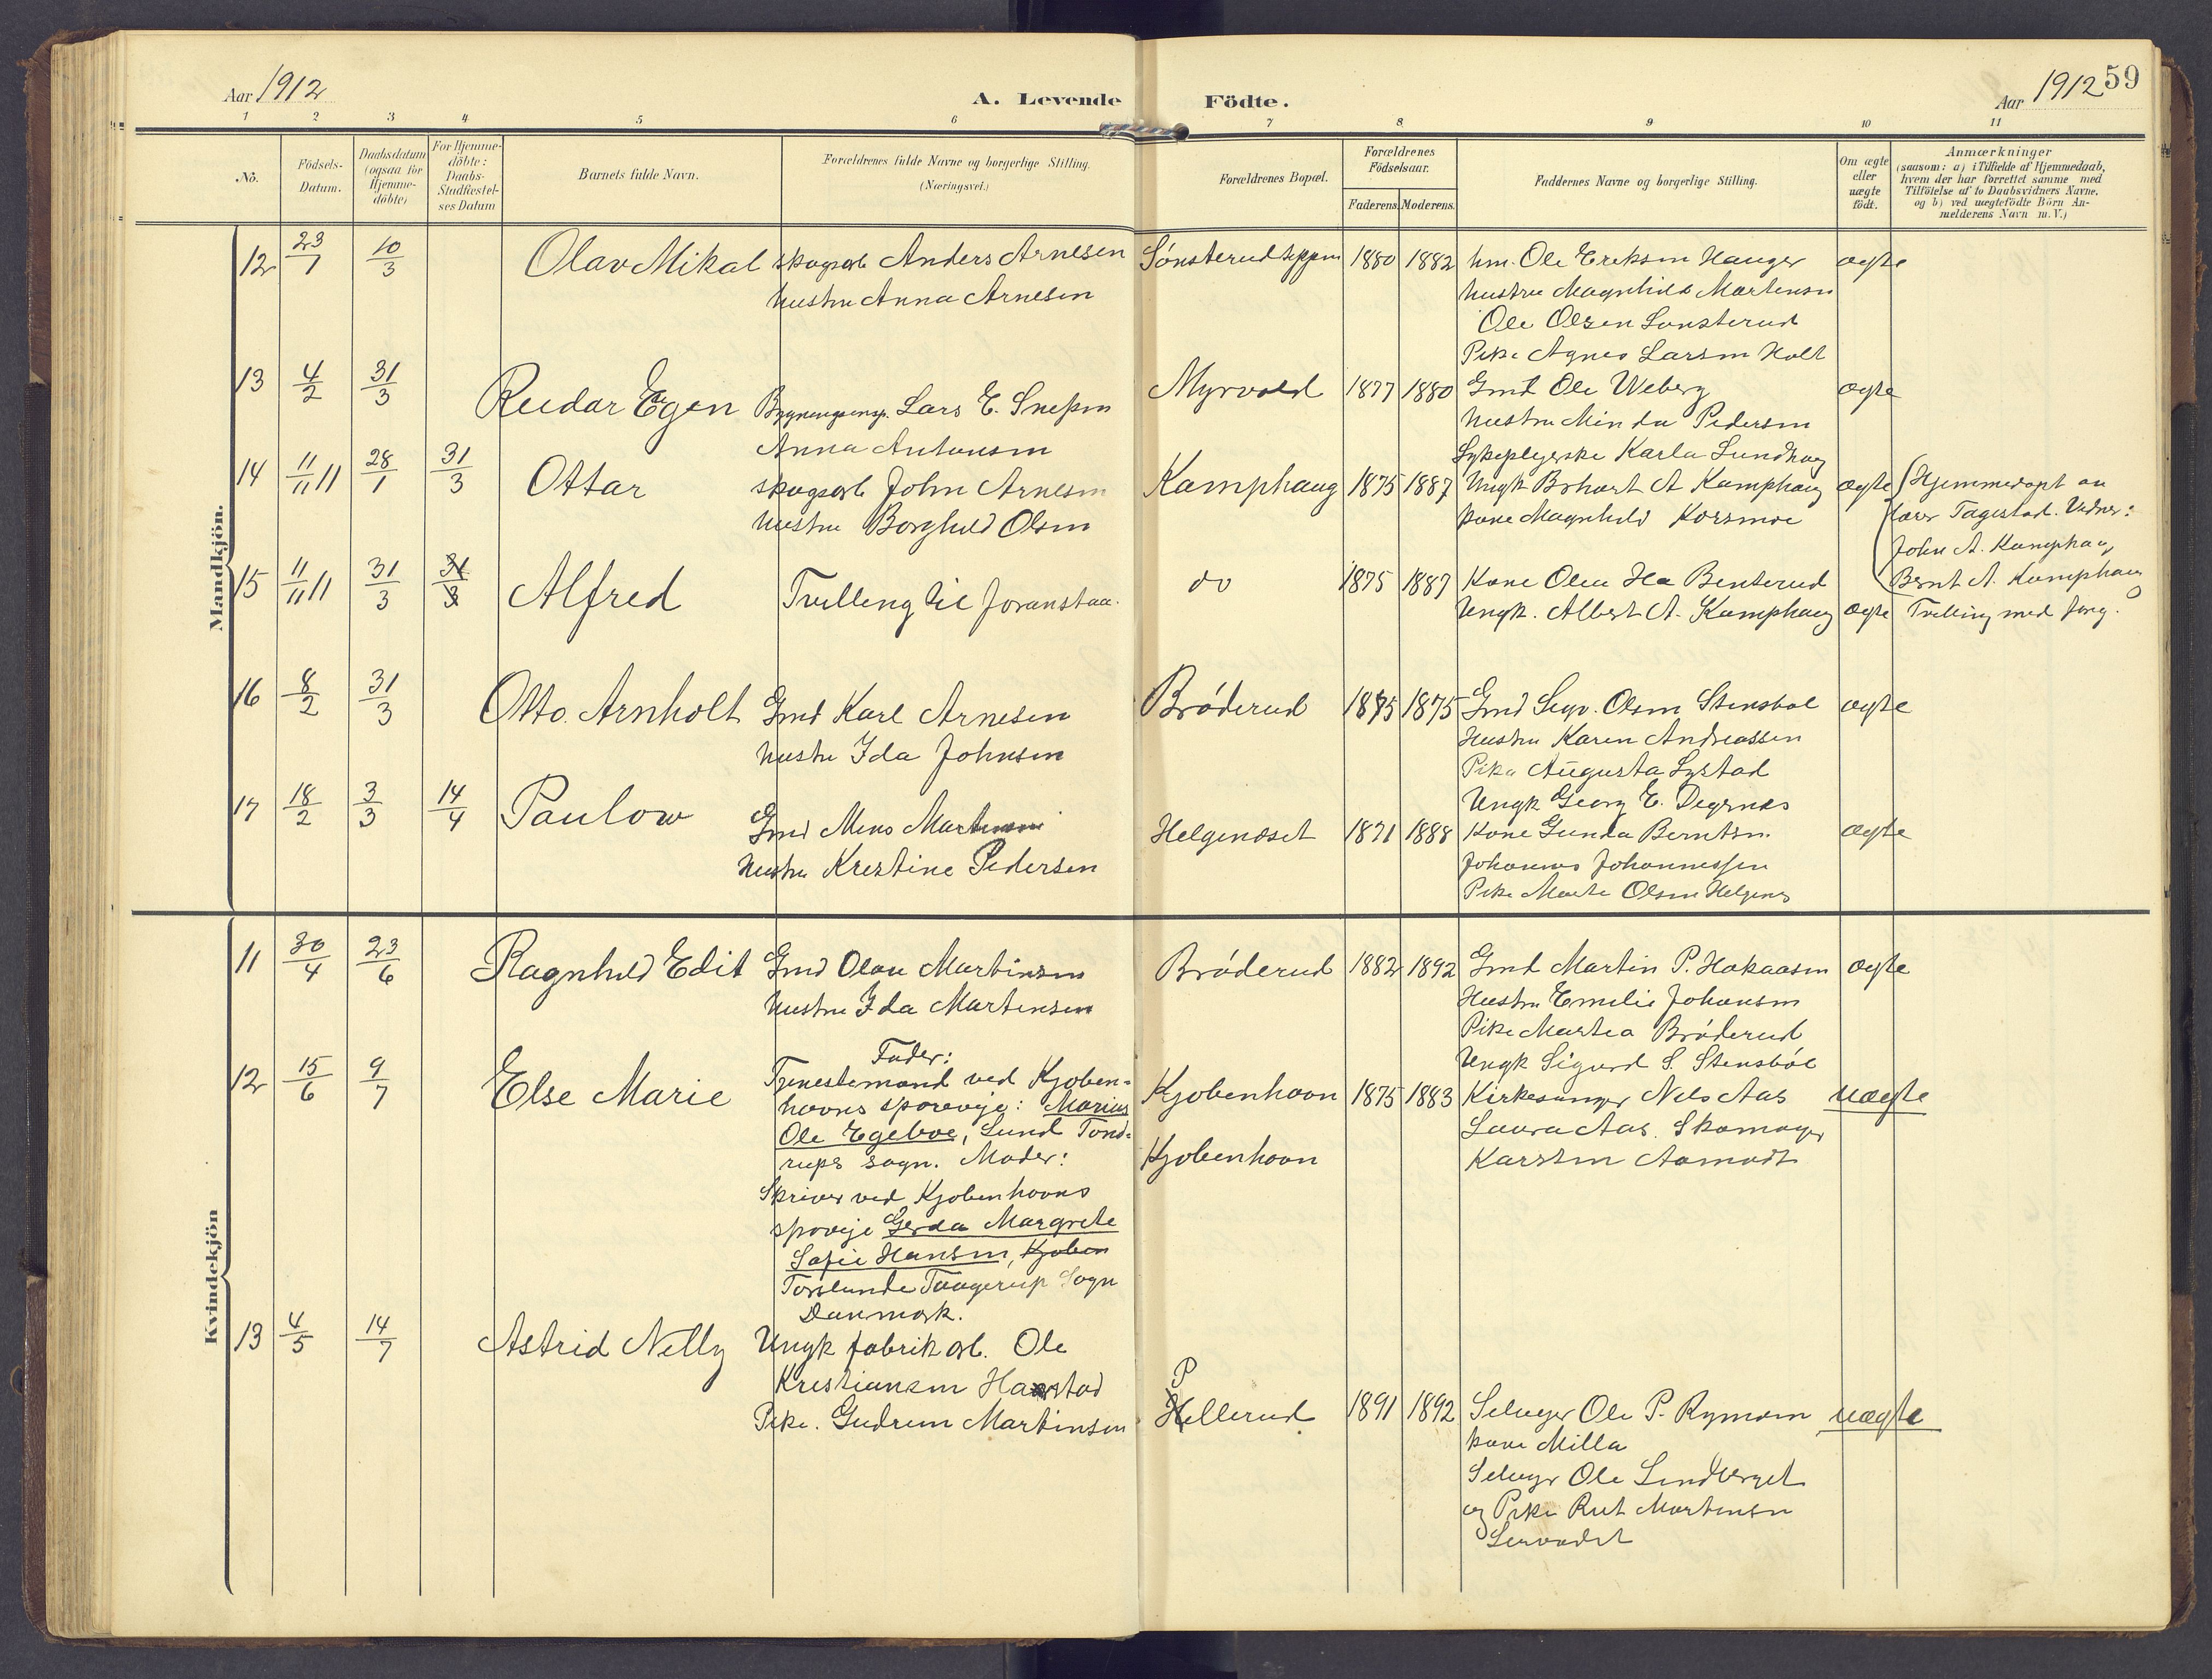 Aar 1912
A. Levende Födte.
Aar 1912 59
1 2 3 4 5 6 7 8. 9 10 11
No. Födsels-Datum. Daabsdatum (ogsaa for Hjemme-döbte) For Hjemme-döbte: Daabs-Stadfæstel-ses Datum Barnets fulde Navn. Forældrenes fulde Navne og borgerlige Stilling. (Næringsvei.) Forældrenes Bopæl. Forældrenes Födselsaar. Faderens. Moderens. Faddernes Navne og borgerlige Stilling. Om ægte eller uægte födt. Anmærkninger (saasom: a) i Tilfælde af Hjemmedaab, hvem der har forrettet samme med Tilföielse af to Daabsvidners Navne, og b) ved uægtefödte Börn An-melderens Navn m. V.)
Mandkjön.
12 23/1 10/3 Olav Mikal skogsarb Anders Arnesen Sønsterud 1880 1882 hm. Ole Eriksen Hauger ægte
hustru Anna Arnesen hustru Magnhild Martensen
Ole Olsen Sønsterud
Pike Agnes Larsen Holt
13 4/2 31/3 Reidar Egen Lars E. Myrvold 1877 1880 Gmd Ole Weberg ægte
Anna Antonsen hustru Minda Pedersen
Sykeplejerske Karla Lundhaug
14 11/11 11 28/1 31/3 Ottar skogsarb John Arnesen Kamphaug 1875 1887 Ungk A Kamphaug ægte Hjemmedøpt av
hustru Borghild Olsen kone Magnhild Korsmoe lærer Tagestad. Vidner:
John A. Kamphaug
Bernt A. Kamphaug
15 11/11 11 31/3 31/3 Alfred Tvilling til foranstaa. do 1875 1887 Kone Olea Benterud
Ungk. Albert A. Kamphaug ægte Tvilling med forg.
16 8/2 31/3 Otto Arnholt Gmd Karl Arnesen Brøderud 1875 1875 Gmd Sigv. Olsen Stensbøl ægte
hustru Ida Johnsen Hustru Karen Andreassen
Pike Augusta Lystad
Ungk Georg E. Degrnes
17 18/2 3/3 14/4 Paulow Gmd Mens Helgenæset 1871 1888 Kone Gunda Berntsen ægte
hustru Krestine Pedersen Johannes Johannessen
Pike Marte Olsen Helgenes
Kvindekjön
11 30/4 23/6 Ragnhild Edit Gmd Olau Martinsen Brøderud 1882 1892 Gmd Martin P. Hakaasen ægte
hustru Ida Martensen Hustru Emilie Johansen
Pike Martea Brøderud
Ungk Sigurd S. Stensbøl
12 15/6 9/7 Else Marie Fader:
Tjenestemand ved Kjøben- Kjøbenhavn 1875 1883 Kirkesanger Nils Aas uægte
havns sporveje: Marius Laura Aas. Skomager
Ole Egeboe, Lund Tond- Kjøbenhavn Karsten Aamodt
rups sogn. Moder:
Skriver ved Kjøbenhavns
spoveje Gerda Margrete
Sofie Hansen, Kjøben
Torslunde Taagerup Sogn
Danmark.
13 4/5 14/7 Astrid Nelly Ungk fabrik arb. Ole
Kristiansen Harstad P
Pike. Gudrun Martinsen Hellerud 1891 1892 Selveger Ole P. uægte
kone Milla
Selvegr Ole Lindberget
og Pike Rut Martensen